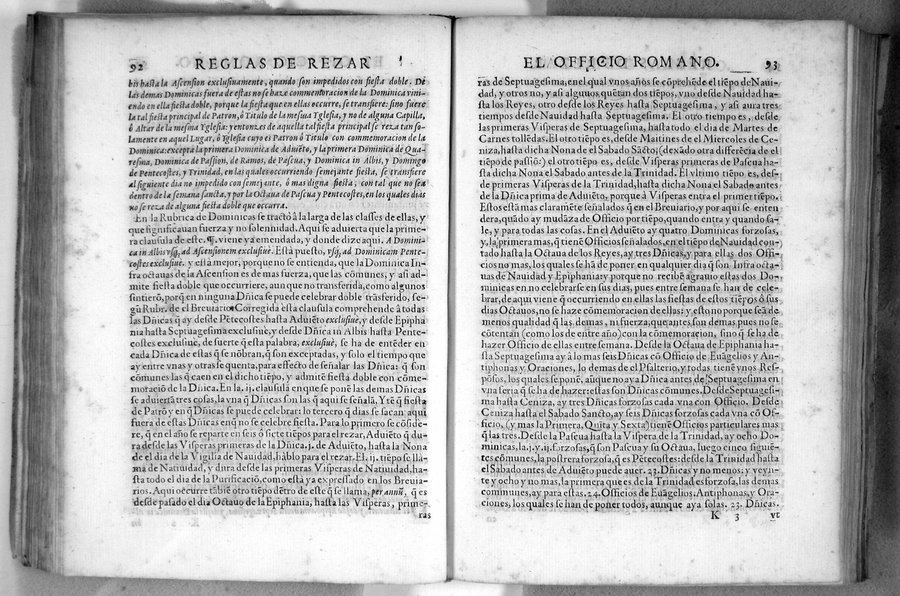 92 REGLAS DE REZAR
bis hasta la Ascension exclusiuamente, quando son impedidos con fiesta doble. De
las demas Dominicas fuera de estas no se haze commemoracion de la Dominica vini-
endo en ella fiesta doble, porque la fiesta que en ellas occurre, se transfiere: sino fuere
la tal fiesta principal de Patron, ò Titulo de la mesma Yglesia, y no de alguna Capilla,
ò Altar de la mesma Yglesia; y entonzes de aquella tal fiesta principal se reza tan so-
lamente en aquel Lugar, ò Yglesia cuyo es Patron ò Titulo con commemoracion de la
Dominica: excepta la primera Dominica de Aduiẽto, y la primera Dominica de Qua-
resma, Dominica de Passion, de Ramos, de Pascua, y Dominica in Albis, y Domingo
de Pentecostes, y Trinidad, en las quales occurriendo semejante fiesta, se transfiere
al siguiente dia no impedido con semejante, ò mas digna fiesta, con tal que no sea
dentro de la semana sancta, y por la Octaua de Pascua y Pentecostes, en los quales dias
no se reza de alguna fiesta doble que occurra.
En la Rubrica de Dominicas se tractò à la larga de las classes de ellas, y
que significauan fuerza y no solennidad. Aqui se aduierta que la prime-
ra clausula de este. ¶. viene ya emendada, y donde dize aqui. A Domini-
ca in Albis vsq̃, ad Ascensionem exclusiuè. Està puesto, vsq̃, ad Dominicam Pente-
costes exclusiuè. y està mejor, porque no se entienda, que la Dominica In-
fra octauas de la Ascension es de mas fuerza, que las cõmunes, y assi ad-
mite fiesta doble que occurriere, aun que no transferida, como algunos
sintierõ, porq̃ en ninguna Dñica se puede celebrar doble trãsferido, se-
gũ Rubr. de el Breuiario Corregida està clausula comprehende à todas
las Dñicas q̃ ay desde Pẽtecostes hasta Aduiẽto exclusiuè, y desde Epipha
nia hasta Septuagesima exclusiuè, y desde Dñica in Albis hasta Pente-
costes exclusiuè, de suerte q̃ esta palabra, exclusiuè, se ha de entẽder en
cada Dñica de estas q̃ se nõbran, q̃ son exceptadas, y solo el tiempo que
ay entre vnas y otras se quenta, para effecto de señalar las Dñicas: q̃ son
cõmunes las q̃ caen en el dicho tiẽpo, y admitẽ fiesta doble con cõme-
moraciõ de la Dñica. En la. ij. clausula en que se ponẽ las demas Dñicas
se aduiertã tres cosas, la vna q̃ Dñicas son las q̃ aqui se señalã. Ytẽ q̃ fiesta
de Patrõ y en q̃ Dñicas se puede celebrar: lo tercero q̃ dias se sacan aqui
fuera de estas Dñicas enq̃ no se celebre fiesta. Para lo primero se cõside-
re, q̃ en el año se reparte en seis ò siete tiẽpos para el rezar, Aduiẽto q̃ du-
ra desde las Visperas primeras de la Dñica. j. de Aduiẽto, hasta la Nona
de el dia de la Vigilia de Nauidad, hablo para el rezar. El. ij. tiẽpo se lla-
ma de Natiuidad, y dura desde las primeras Visperas de Natiuidad, ha-
sta todo el dia de la Purificaciõ, como està ya expressado en los Breuia-
rios. Aqui occurre tãbiẽ otro tiẽpo dẽtro de este q̃ se llama, per annũ, q̃ es
desde pasado el dia Octauo de la Epiphania, hasta las Visperas, prime-
ras
EL OFFICIO ROMANO. 93
ras de Septuagesima, en el qual vnos años se cõprehẽde el tiẽpo de Naui-
dad, y otros no, y asi algunos quẽtan dos tiẽpos, vno desde Nauidad ha-
sta los Reyes, otro desde los Reyes hasta Septuagesima, y asi aura tres
tiempos desde Nauidad hasta Septuagesima. El otro tiẽpo es, desde
las primeras Visperas de Septuagesima, hasta todo el dia de Martes de
Carnes tollẽdas. El otro tiẽpo es, desde Maitines de el Miercoles de Ce-
niza, hasta dicha Nona de el Sabado Sãcto (dexãdo otra differẽcia de el
tiẽpo de passiõ:) el otro tiẽpo es, desde Visperas primeras de Pascua ha-
sta dicha Nona el Sabado antes de la Trinidad. El vltimo tiẽpo es, des-
de primeras Visperas de la Trinidad, hasta dicha Nona el Sabado antes
de la Dñica prima de Aduiẽto, porque à Visperas entra el primer tiẽpo.
Esto està mas claramẽte señalados q̃ en el Breuiario, y por aqui se enten
dera, quãdo ay mudãza de Officio por tiẽpo, quando entra y quando sa-
le, y para todas las cosas. En el Aduiento ay quatro Dominicas forzosas,
y, la primera mas, q̃ tienẽ Officios señalados, en el tiẽpo de Nauidad con-
tado hasta la Octaua de los Reyes, ay tres Dñicas, y para ellas dos Offi-
cios no mas, los quales se hã de poner en qualquier dia q̃ son Infra octa-
uas de Nauidad y Epiphania: y porque no recibẽ agrauio estas dos Do-
minicas en no celebrarse en sus dias, pues entre semana se han de cele-
brar, de aqui viene q̃ occurriendo en ellas fiestas de estos tiẽpos ò sus
dias Octauos, no se haze commemoracion de ellas: y esto no porque seã de
menos qualidad q̃ las demas, ni fuerza, que antes son demas pues no se
cõtentan (como los de entre año) con la cõmemoracion, sino q̃ se ha de
hazer Officio de ellas entre semana. Desde la Octaua de Epiphania ha-
sta Septuagesima ay à lo mas seis Dñicas cõ Officio de Euãgelios y An-
tiphonas y Oraciones, lo demas de el Psalterio, y todas tienẽ vnos Res-
põsos, los quales se ponẽ, aũque no aya Dñica antes de Septuagesima en
vna feria q̃ se ha de hazer: estas son Dñicas cõmunes. Desde Septuagesi-
ma hasta Ceniza, ay tres Dñicas forzosas cada vna con Officio. Desde
Ceniza hasta el Sabado Sancto, ay seis Dñicas forzosas cada vna cõ Of-
ficio, (y mas la Primera, Quita y Sexta) tienẽ Officios particulares mas
q̃ las tres. Desde la Pascua hasta la Vispera de la Trinidad, ay ocho Do-
minicas, la. j. y. ij. forzosas, q̃ son Pascua y su Octaua, luego cinco siguiẽ-
tes cõmunes, la postrera forzosa, q̃ es Pẽtecostes: desde la Trinidad hasta
el Sabado antes de Aduiẽto puede auer. 23. Dñicas y no menos: y veyn-
te y ocho y no mas, la primera que es de la Trinidad es forzosa, las demas
communes, ay para estas. 24. Officios de Euãgelios, Antiphonas, y Ora-
ciones, los quales se han de poner todos, aunque aya solas. 23. Dñicas.
K 3 vt